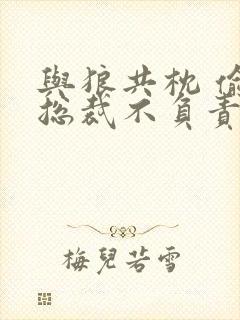 與狼共枕 偷
總裁不負責
梅兒若雪